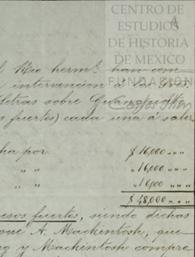 CENTRO DE
ESTUDIOS
DE HISTORIA
DE MEXICO
FUNDACION
Mio hermº. han con
intervencion a los Sres
letras sobre Guanajuato
fuertes) cada una á saber
por $ 16,000 " "
" " " 16,000 " "
" " " 16,000 " "
$ 48,000 " "
pesos fuertes, siendo dichas
que A. Mackintosh, que
y Mackintosh compre